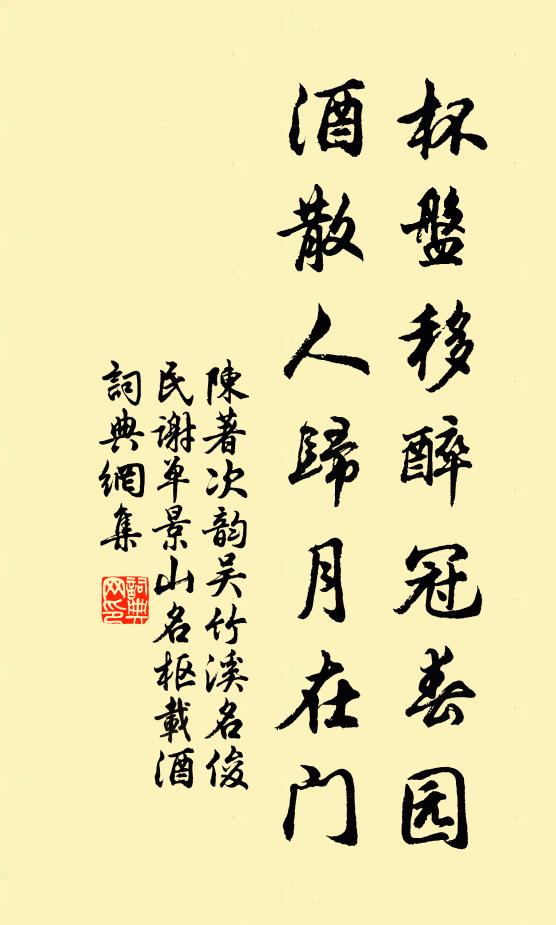 杯盤移醉冠春园
酒散人歸月在门
陳著次韵吴竹溪名俊
民謝单景山名枢載酒
詞典網集
詞典网印